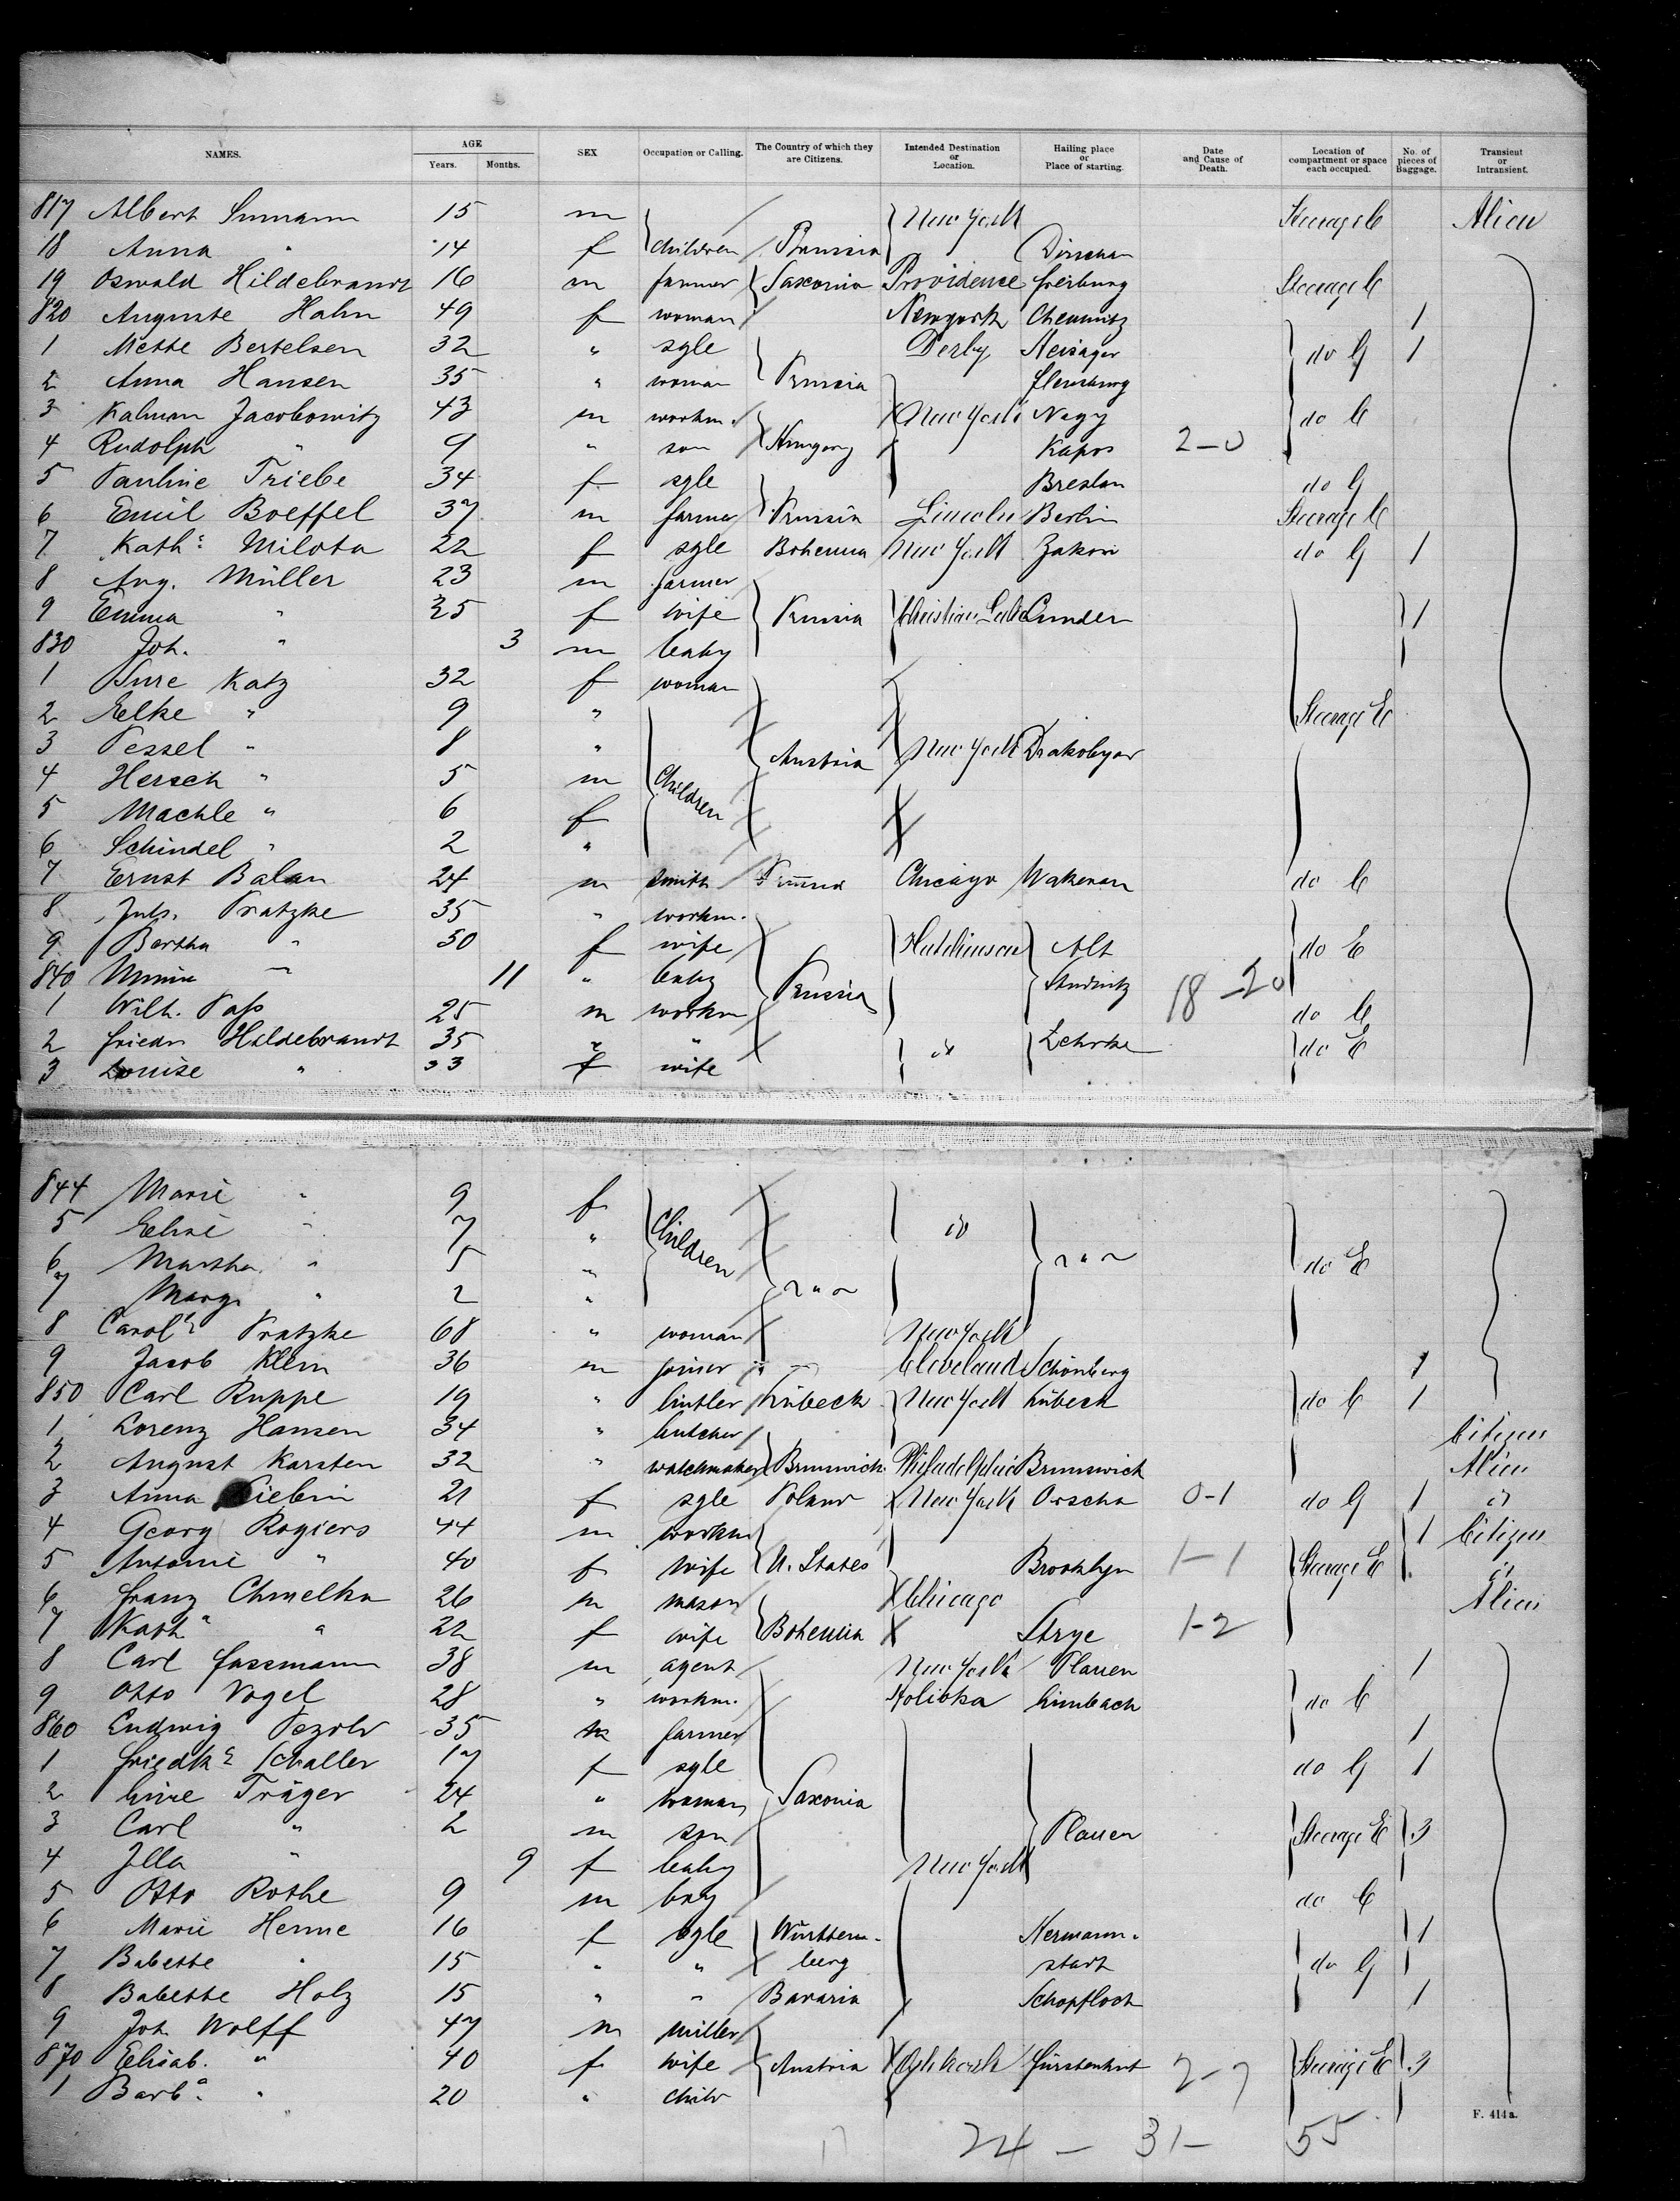 NAMES. AGE Years. Months. SEX Occupation or Calling. The Country of which they are Citizens. Intended Destination or Location. Hailing place or Place of starting. Date and Cause of Death. Location of compartment or space each occupied. No. of pieces of Baggage. Transient or Intransient.
817 Albert 15 m New York Steerage C Alien
18 Anna " 14 f children Prussia Dirschau
19 Oswald Hildebrandt 16 m farmer Saxonia Providence freiburg Steerage C
820 Auguste Hahn 49 f woman Newyork Chemnitz 1
1 Mette Bertelsen 32 " sgle Derby do G 1
2 Anna Hansen 35 " woman Prussia flensburg
3 Kalman Jacobowitz 43 m workm. New York Nagy do C
4 Rudolph " 9 " son Hungary Kapos 2-0
5 Pauline Triebe 34 f sgle Breslau do G
6 Emil Boeffel 37 m farmer Prussia Lincoln Berlin Steerage C
7 Kath: Milota 22 f sgle Bohemia New York Zakori do G 1
8 Aug. Müller 23 m farmer
9 Emma " 25 f wife Prussia Christian Lake Emden 1
830 Joh. " 3 m baby
1 Sure Katz 32 f woman
2 Elke " 9 " Steerage E
3 Pessel " 8 " Austria New York Drakobyor
4 Hersch " 5 m Children
5 Machle " 6 f
6 Schindel " 2 "
7 Ernst Balan 24 m smith Prussia Chicago Wakenau do C
8 Juls. Pratzke 35 " workm.
9 Bertha " 30 f wife Hutchinson Alt do E
840 Minna " 11 " baby Prussia Studnitz 18-20
1 Wilh. Pass 25 m workm do C
2 friedr Hildebrandt 35 " " do Zehrke do E
3 Louise " 33 f wife
844 Marie " 9 f
5 Elise " 7 " Children do " " "
6 Martha " 5 " do E
7 Marg. " 2 " " " "
8 Carol: Pratzke 68 " woman New York
9 Jacob Klein 36 m joiner " Cleveland Schönberg 1
850 Carl Ruppe 19 " butler Lübeck New York Lübeck do C 1
1 Lorenz Hansen 34 " butcher Citizen
2 August Karsten 32 " watchmaker Brunswick Philadelphia Brunswick Alien
3 Anna 21 f sgle Poland New York Orscha 0-1 do G 1 do
4 Georg Rogiers 44 m workm 1 Citizen
5 Antonie " 40 f wife U. States Brooklyn 1-1 Steerage E do
6 franz Chmelka 26 m mason Chicago Alien
7 Kath " " 22 f wife Bohemia Strye 1-2
8 Carl fassmann 38 m agent New York Plauen 1
9 Otto Vogel 28 " workm. Holioka Limbach do C
860 Ludwig Pezold 35 m farmer 1
1 friedke Schaller 17 f sgle do G 1
2 Line Träger 24 " woman Saxonia
3 Carl " 2 m son Plauen Steerage E 3
4 Illa " 9 f baby New York
5 Otto Rothe 9 m boy do C
6 Marie Henne 16 f sgle Württem- Hermann- 1
7 Babette " 15 " " berg stadt do G
8 Babette Holz 15 " " Bavaria Schopfloch 1
9 Joh Wolff 47 m miller
870 Elisab. " 40 f wife Austria Oshkosh fürstenhut 2-7 Steerage E 3
1 Barb: " 20 " child
F. 414a.
24 - 31- 55